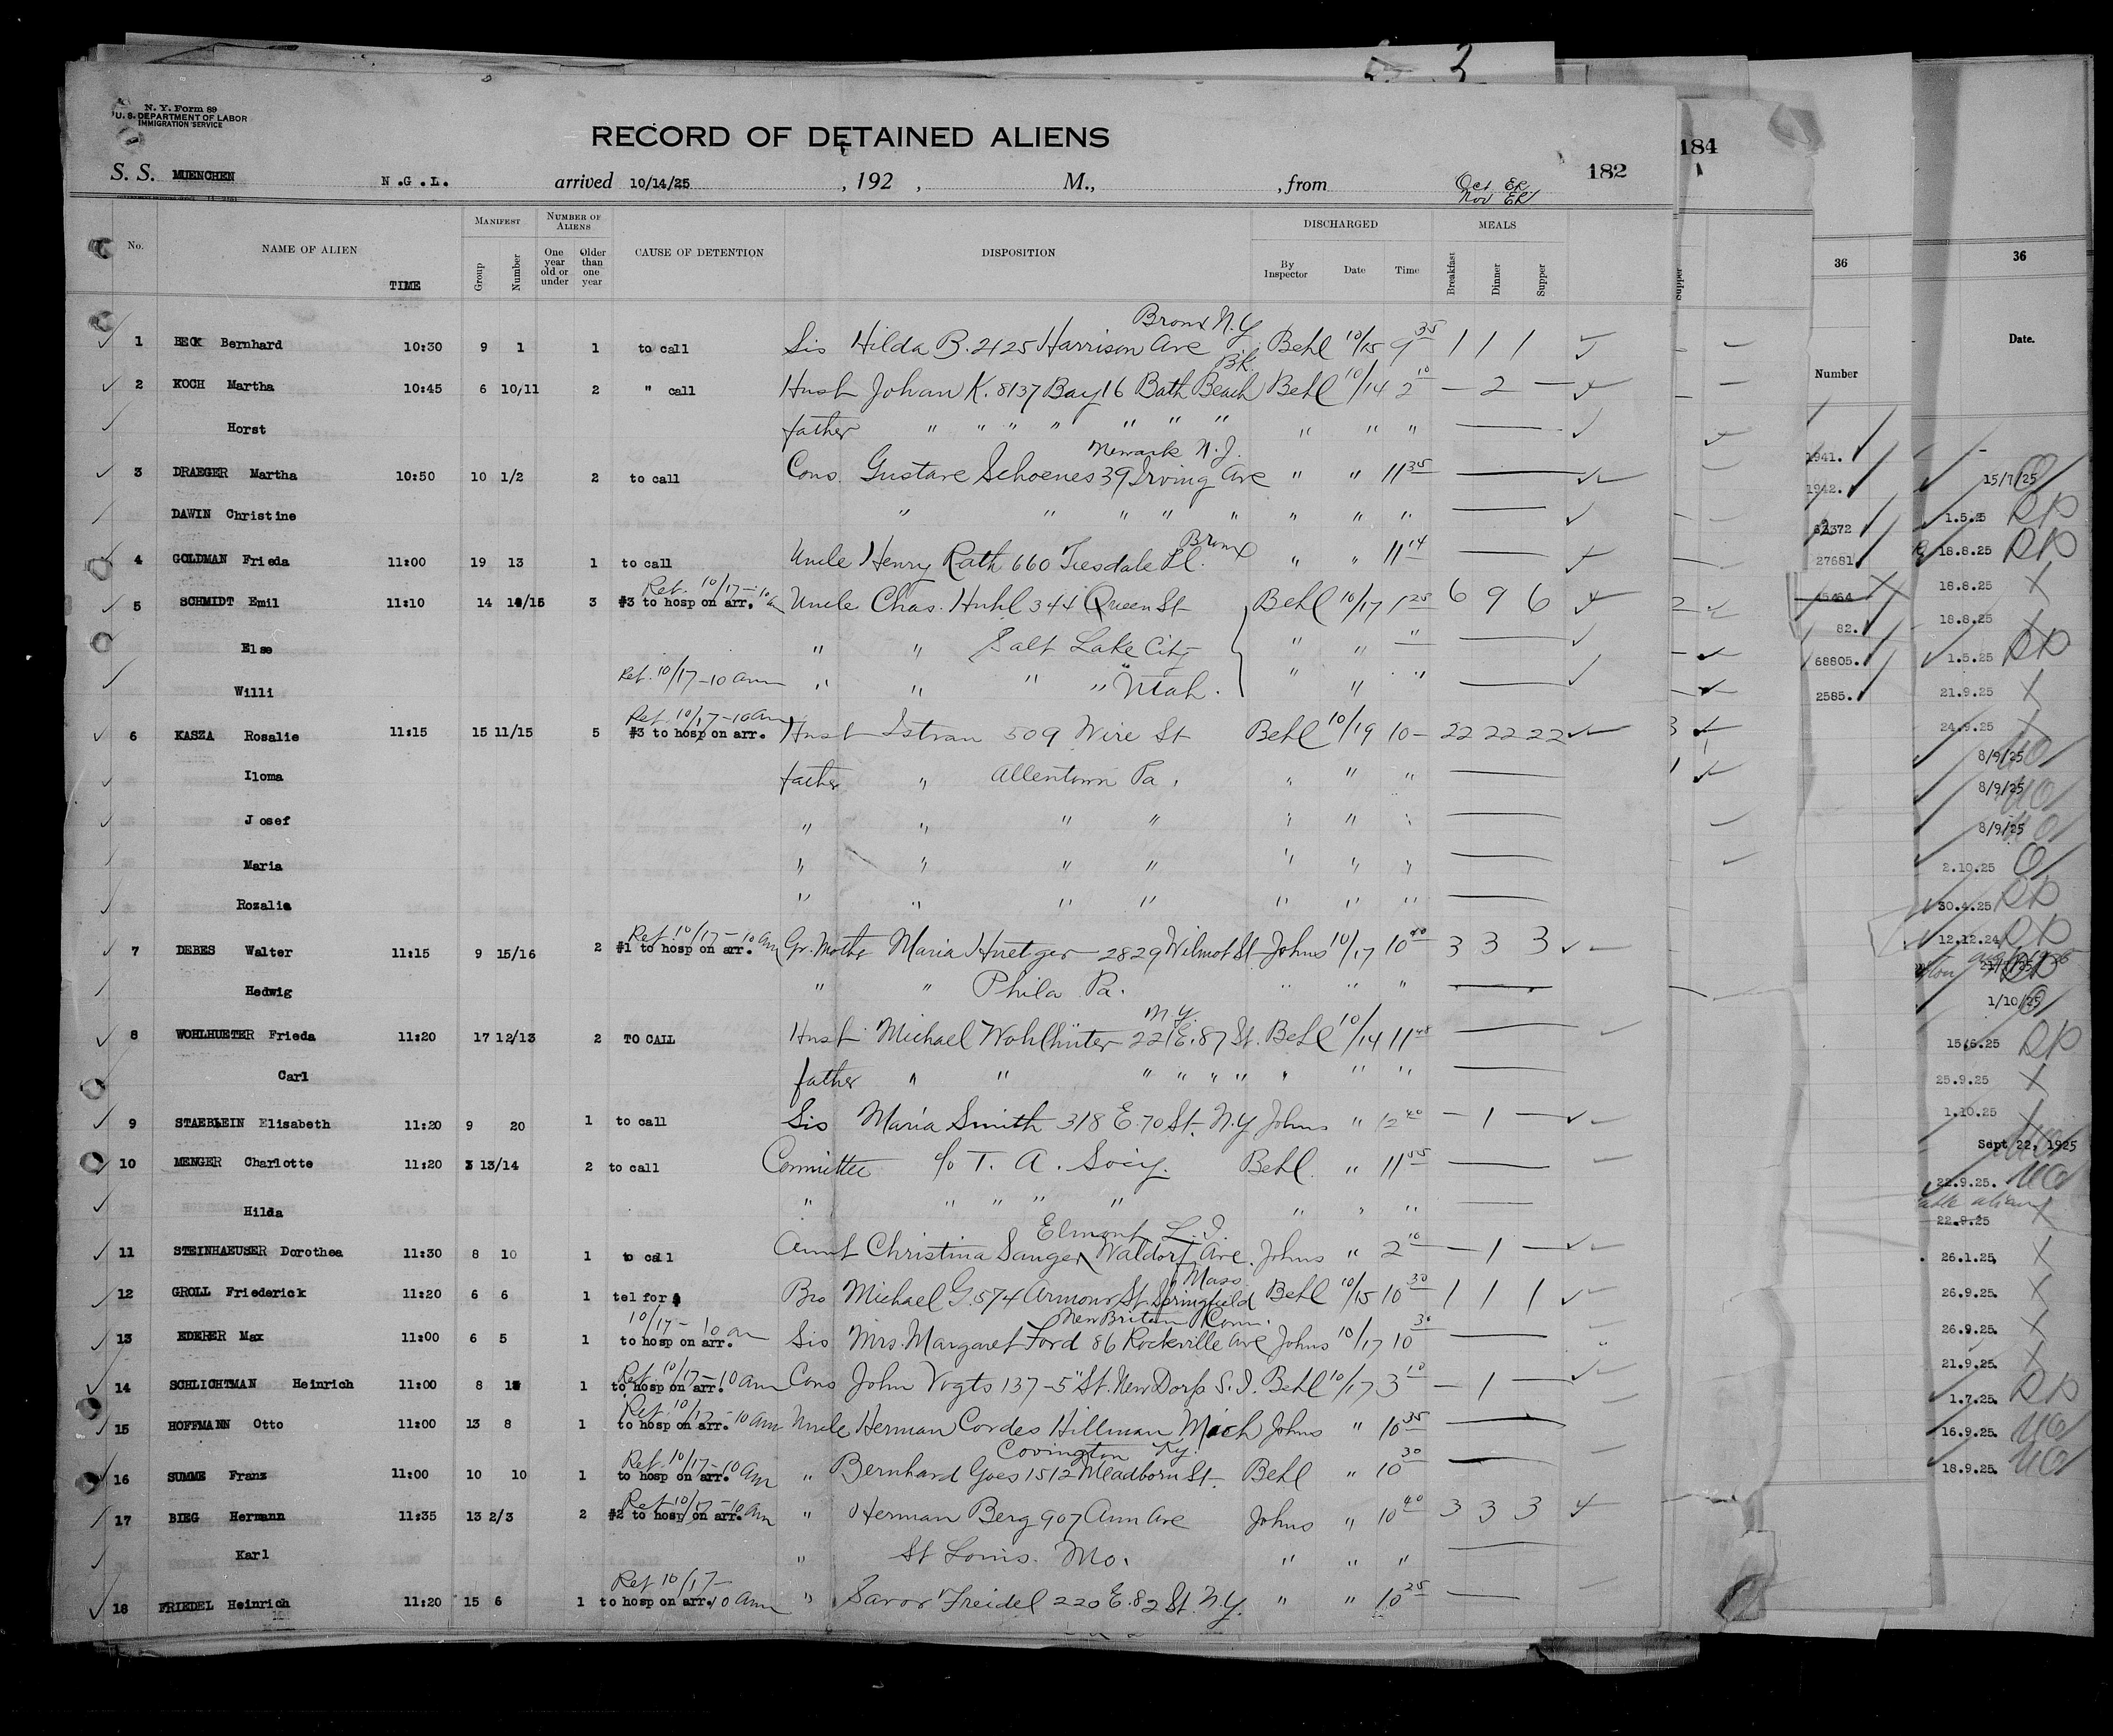 N. Y. Form 89
U. S. DEPARTMENT OF LABOR
IMMIGRATION SERVICE
RECORD OF DETAINED ALIENS
182
184
S. S. MUENCHEN N.G.L. arrived 10/14/25, 192 , M., , from
Oct ER
Nov ER
No. NAME OF ALIEN TIME MANIFEST Group Number NUMBER OF ALIENS One year old or under Older than one year CAUSE OF DETENTION DISPOSITION DISCHARGED By Inspector Date Time MEALS Breakfast Dinner Supper
Bronx N.Y
1 BECK Bernhard 10:30 9 1 1 to call Sis Hilda B. 2125 Harrison Ave Behl 10/15 9 35 1 1 1
Bk
2 KOCH Martha 10:45 6 10,11 2 " call Husb Johan K. 8137 Bay 16 Bath Beach Behl 10/14 2 10 — 2 —
Horst father " " " " " " " " " "
Newark N.J.
3 DRAEGER Martha 10:50 10 1/2 2 to call Cons. Gustave Schoenes 39 Irving Ave " " 11 35
DAWIN Christine " " " " " " " "
Bronx
4 GOLDMAN Frieda 11:00 19 13 1 to call Uncle Henry Rath 660 Tiesdale Pl. " " 11 14
Ret. 10/17-10 a
5 SCHMIDT Emil 11:10 14 /15 3 #3 to hosp on arr. Uncle Chas. Huhl 344 Queen St Behl 10/17 1 25 6 9 6
Else " " Salt Lake City " " "
Willi Ret. 10/17-10 am " " " " Utah. " " "
Ret 10/17-10 am
6 KASZA Rosalie 11:15 15 11/15 5 #3 to hosp on arr. Husb Istvan 509 Wire St Behl 10/19 10- 22 22 22
Iloma father " Allentown Pa. " " "
Josef " " " " " " "
Maria " " " " " " "
Rozalie " " " " " " "
Ret 10/17-10 am
7 DEBES Walter 11:15 9 15/16 2 #1 to hosp on arr. Gr. Mother Maria Huetger 2829 Wilmot St Johns 10/17 10 40 3 3 3
Hedwig " " Phila Pa. " " "
N.Y.
8 WOHLHUETER Frieda 11:20 17 12/13 2 TO CALL Husb Michael Wohlhüter 221 E. 87 St. Behl 10/14 11 48
Carl father " " " " " " " " "
9 STAEBLEIN Elisabeth 11:20 9 20 1 to call Sis Maria Smith 318 E. 70 St. N.Y Johns " 12 40 — 1 —
10 MENGER Charlotte 11:20 3 13/14 2 to call Committee c/o T. A. Socy. Behl " 11 55
Hilda " " " " " " " "
Elmont, L.I.
11 STEINHAEUSER Dorothea 11:30 8 10 1 to call Aunt Christina Sanger Waldorf Ave. Johns " 2 10 — 1 —
Mass.
12 GROLL Friederick 11:20 6 6 1 tel for Bro Michael G. 574 Armour St. Springfield Behl 10/15 10 30 1 1 1
10/17- 10 am New Britain Conn.
13 EDERER Max 11:00 6 5 1 to hosp on arr. Sis Mrs. Margaret Ford 86 Rockville Ave Johns 10/17 10 30
Ret 10/17-10 am
14 SCHLICHTMAN Heinrich 11:00 8 1 to hosp on arr. Cons John Vogts 137-5" St. New Dorp S.I. Behl 10/17 3 10 — 1 —
Ret 10/17-10 am
15 HOFFMANN Otto 11:00 13 8 1 to hosp on arr. Uncle Herman Cordes Hillman Mich Johns " 10 35
Ret 10/17-10 am Covington Ky.
16 SUMME Franz 11:00 10 10 1 to hosp on arr. " Bernhard Goes 1512 Meadborn St. Behl " 10 30
Ret 10/17-10 am
17 BIEG Hermann 11:35 13 2/3 2 #2 to hosp on arr. " Herman Berg 907 Ann Ave Johns " 10 40 3 3 3
Karl " St Louis. Mo. " " "
Ret 10/17-
18 FRIEDEL Heinrich 11:20 15 6 1 to hosp on arr. 10 am " Freidel 220 E. 82 St. N.Y. " " 10 25
Supper
36
Number
1941.
1942.
27681
82.
68805.
2585.
36
Date.
15/7/25
1.5.25
18.8.25
18.8.25
18.8.25
1.5.25
21.9.25
24.9.25
8/9/25
8/9/25
8/9/25
2.10.25
30.4.25
12.12.24
1/10/25
15/6.25
25.9.25
1.10.25
Sept 22, 1925
22.9.25.
22.9.25
26.1.25
26.9.25.
26.9.25.
21.9.25.
1.7.25.
16.9.25.
18.9.25.